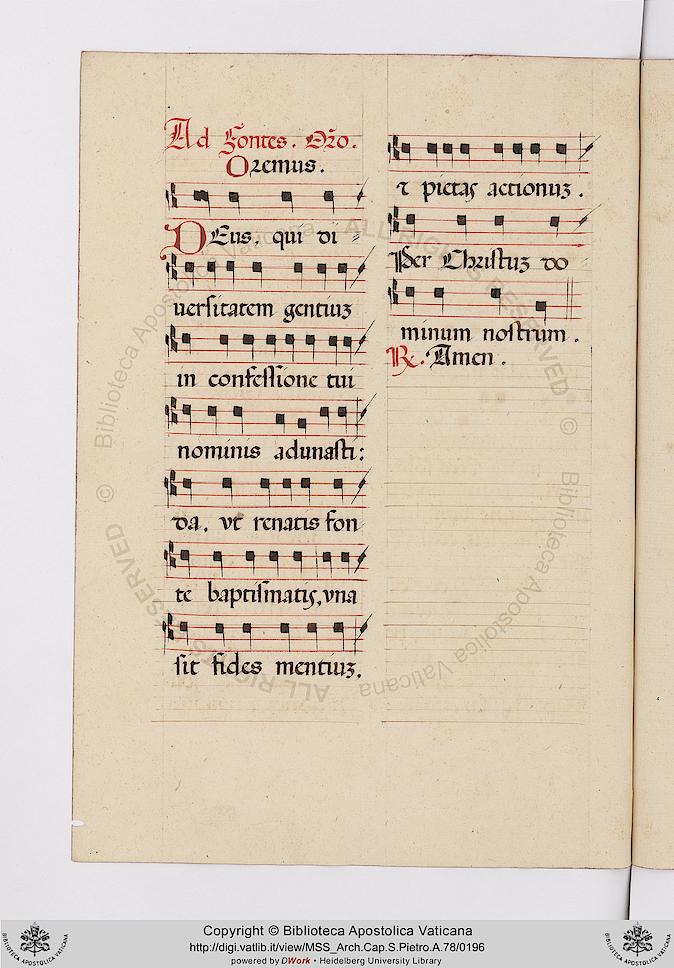 Ad Fontes. Or̃o.
Oremus.
DEus, qui di⸗
uersitatem gentiuꝫ
in confessione tui
nominis adunasti:
da, vt renatis fon
te baptismatis, vna
sit fides mentiuꝫ.
⁊ pietas actionuꝫ.
Per Christuꝫ do
minum nostrum.
℟. Amen.
© Biblioteca Apostolica Vaticana ALL RIGHTS RESERVED
© Biblioteca Apostolica Vaticana ALL RIGHTS RESERVED
BIBLIOTECA APOSTOLICA VATICANA
Copyright © Biblioteca Apostolica Vaticana
http://digi.vatlib.it/view/MSS_Arch.Cap.S.Pietro.A.78/0196
powered by DWork • Heidelberg University Library
BIBLIOTECA APOSTOLICA VATICANA